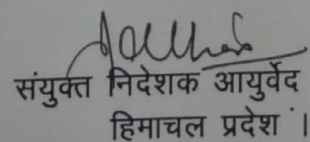 संयुक्त निदेशक आयुर्वेद
हिमाचल प्रदेश ।